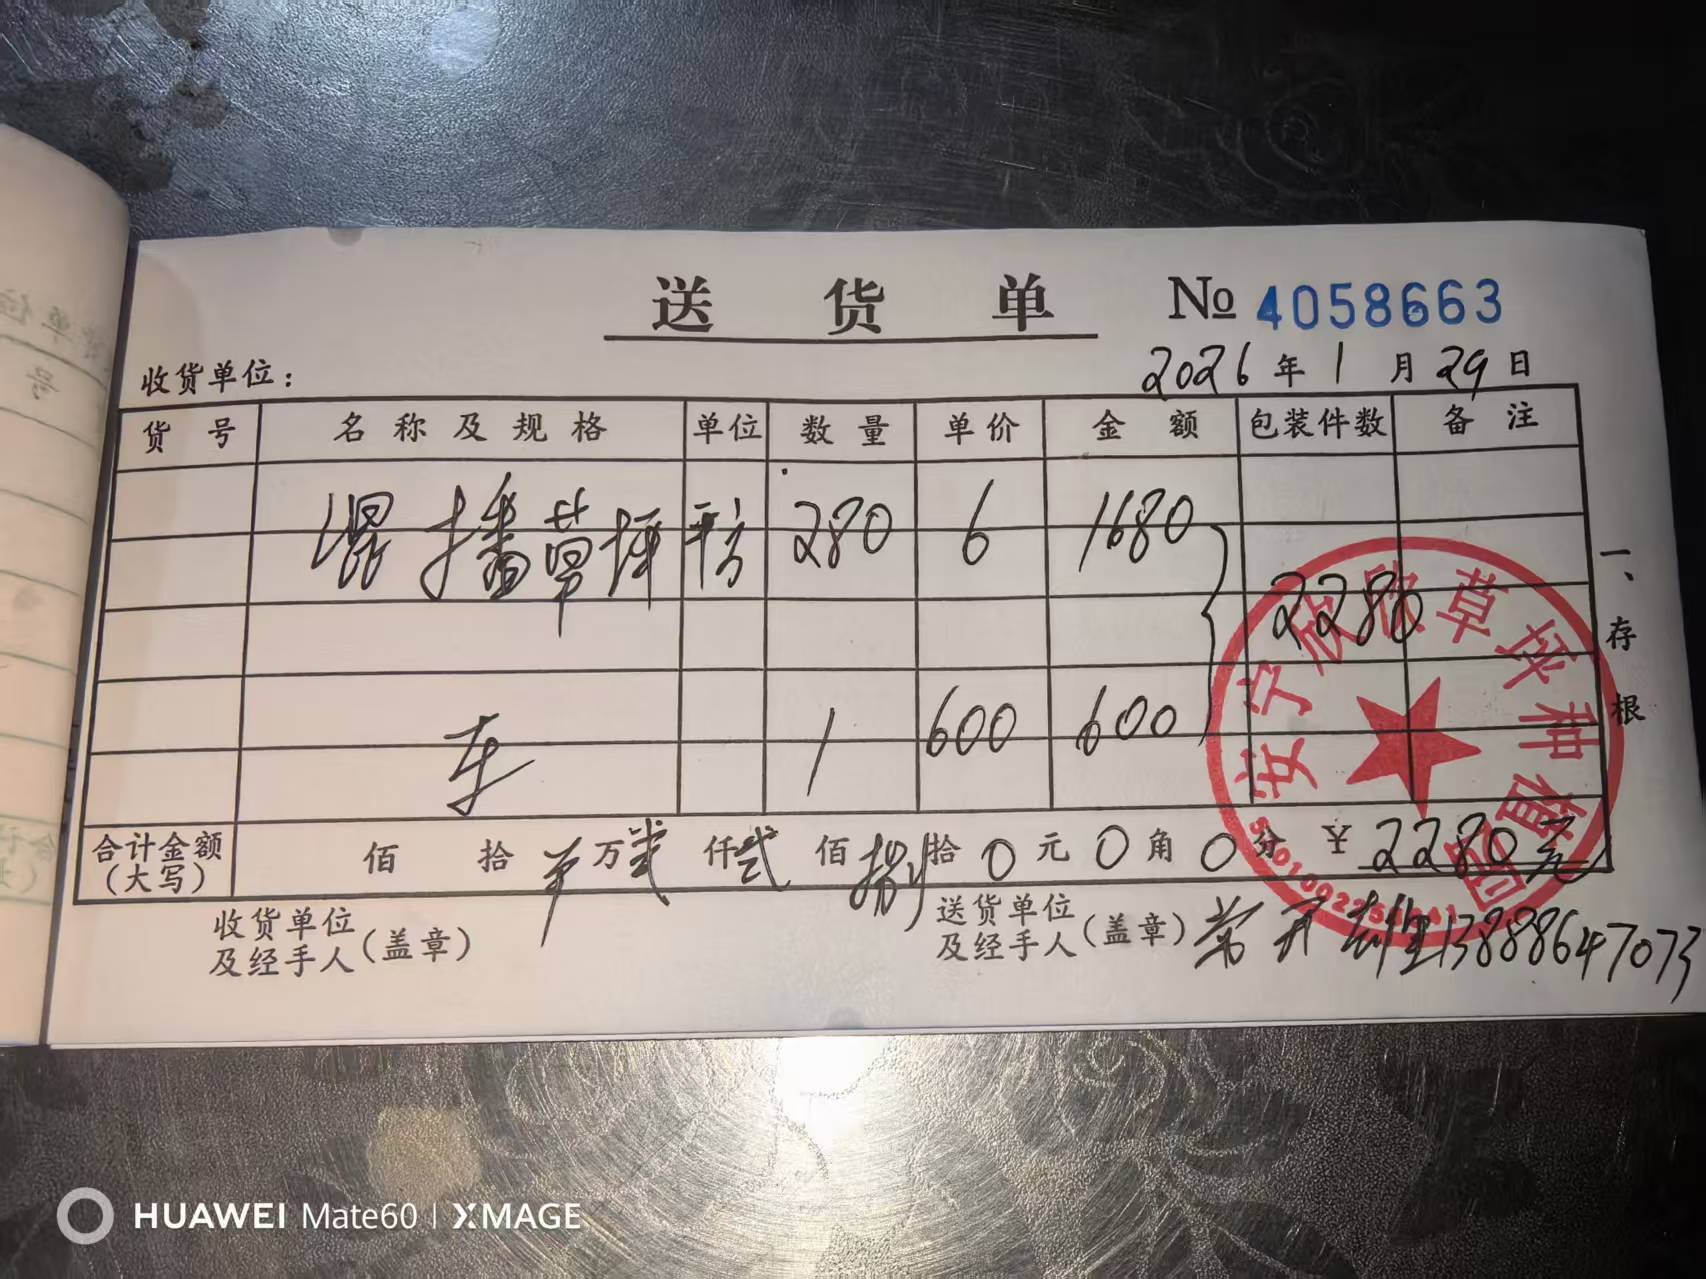 送 货 单 № 4058663
2026 年 1 月 29 日
收货单位：
货 号 名 称 及 规 格 单位 数 量 单 价 金 额 包装件数 备 注
混播草坪 平方 280 6 1680
2280
车 1 600 600
合计金额（大写） 佰 拾 万 贰 仟 贰 佰 捌 拾 0 元 0 角 0 分 ￥ 2280元
收货单位及经手人（盖章）
送货单位及经手人（盖章） 13888647073
一、存根
安宁欣欣草坪种植园
HUAWEI Mate60 | XMAGE